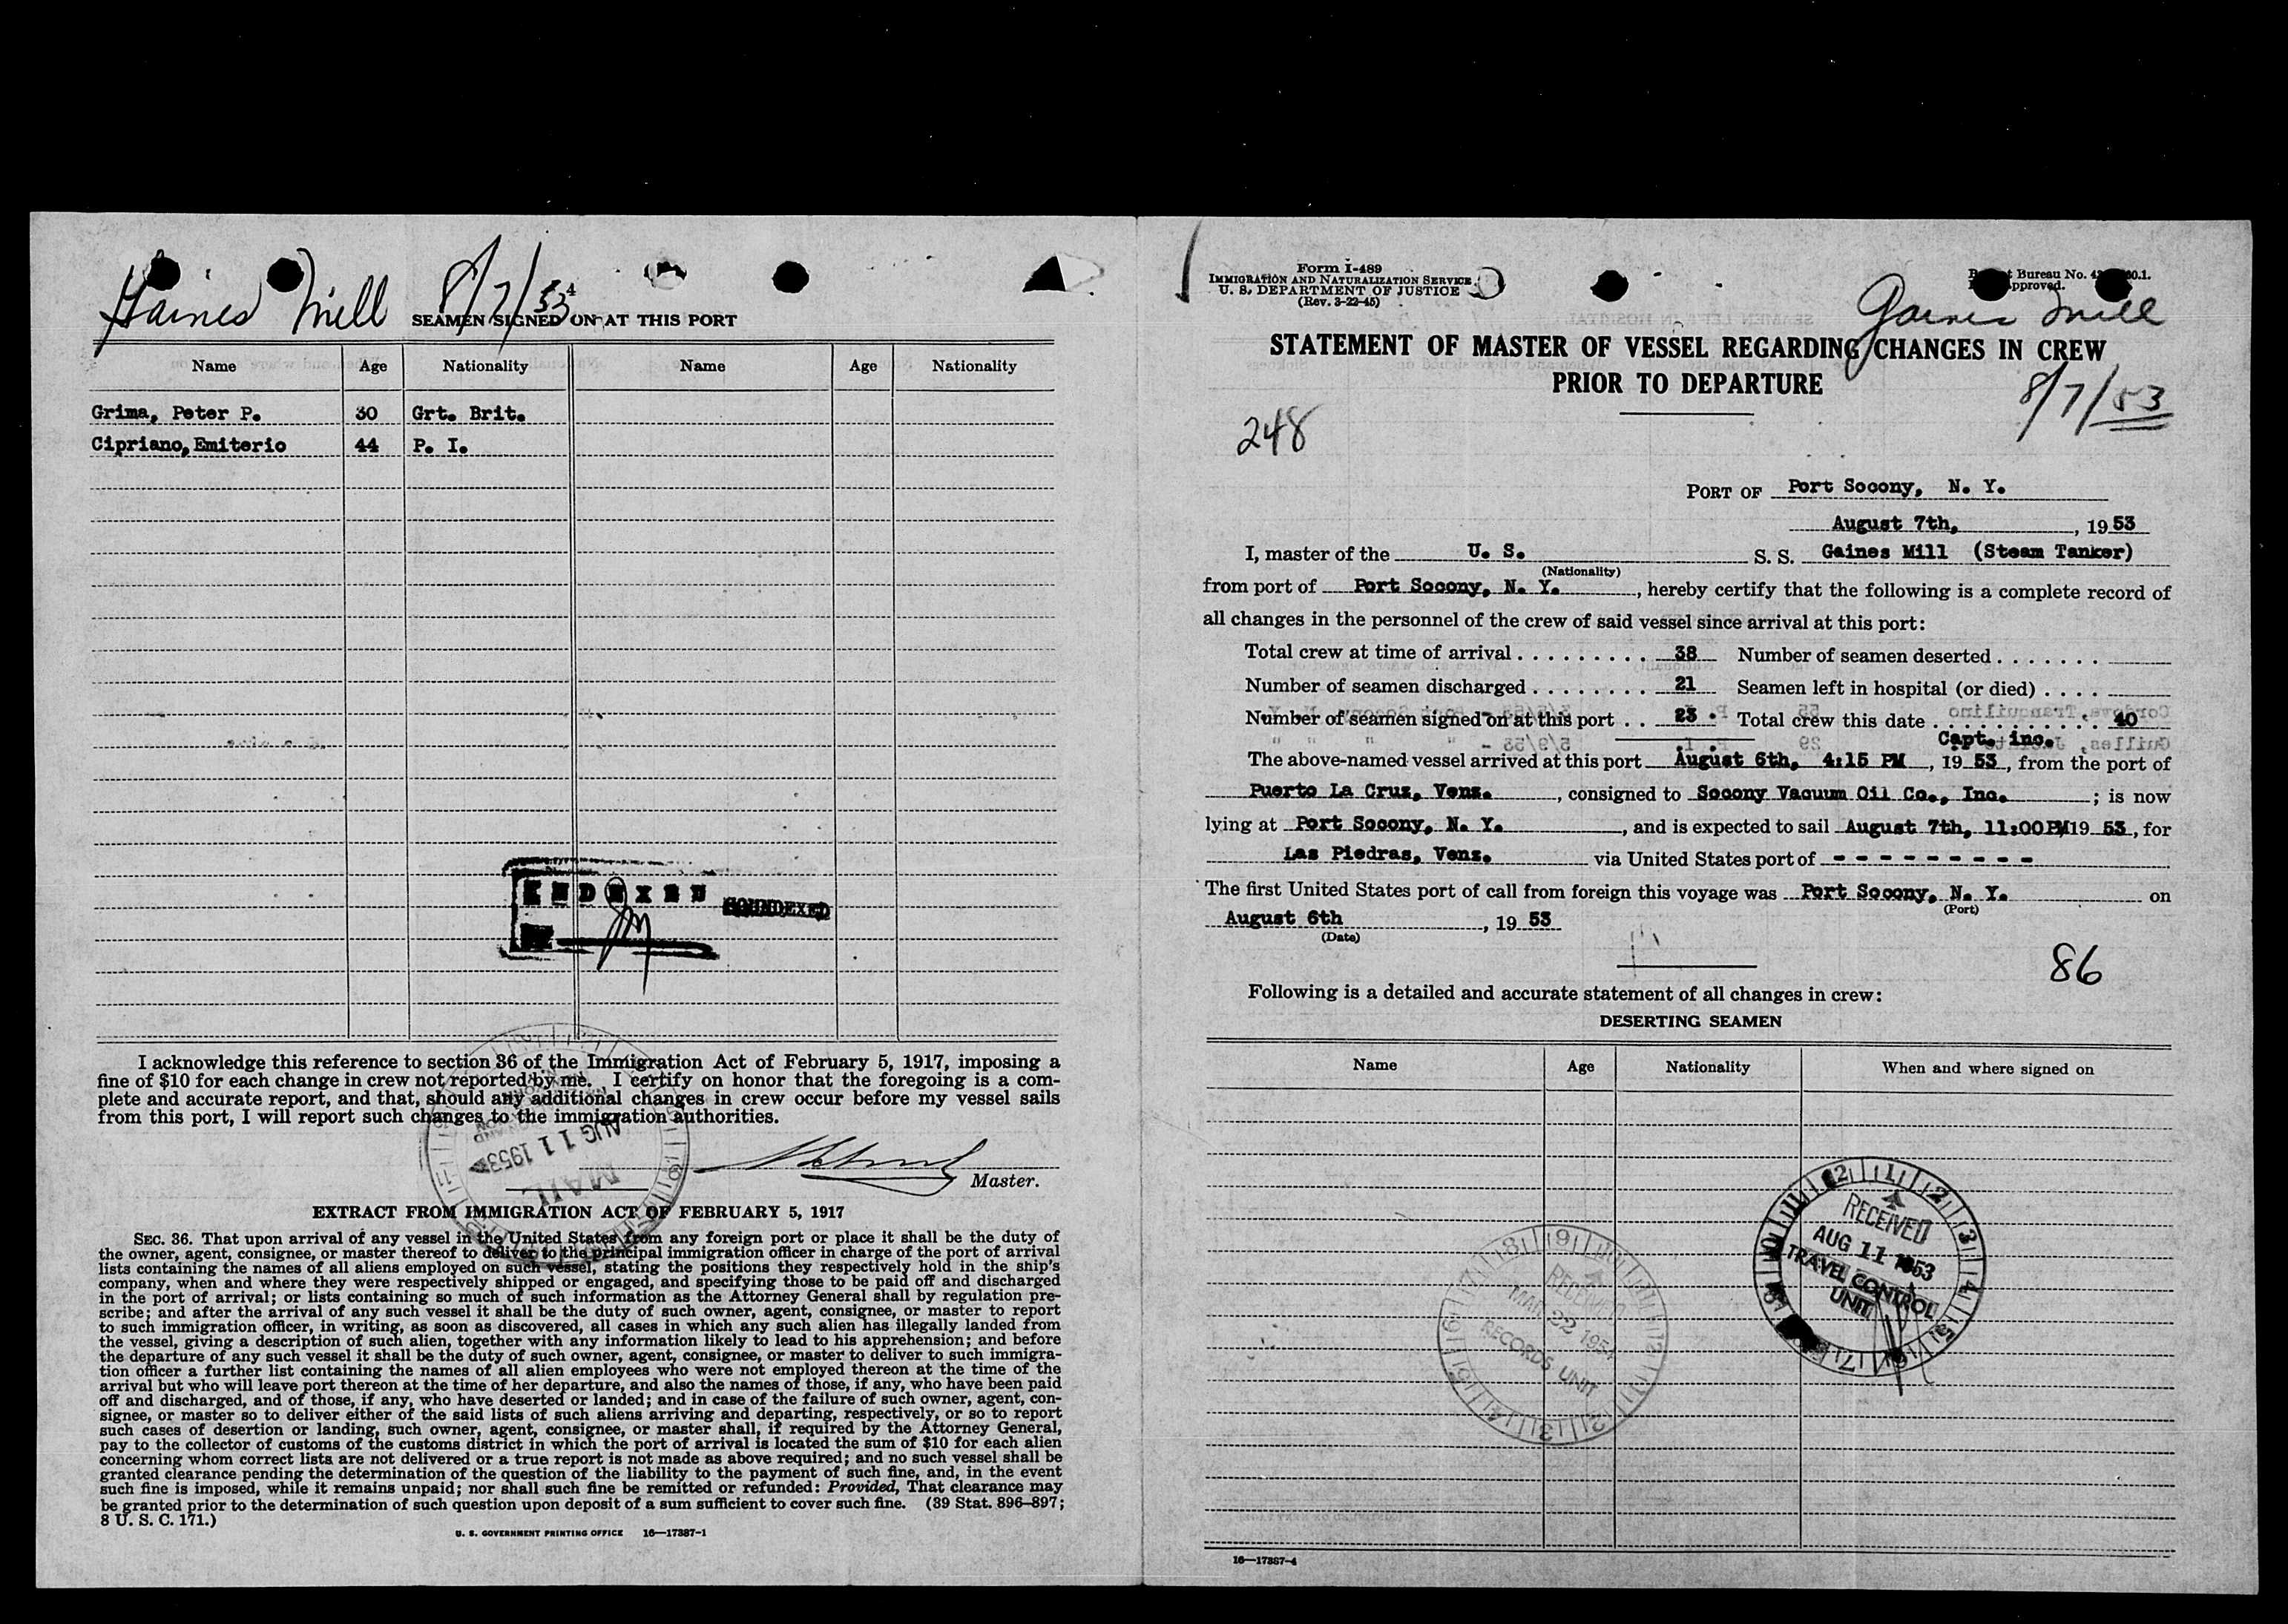 Gaines Mill 8/7/53
SEAMEN SIGNED ON AT THIS PORT
Name Age Nationality Name Age Nationality
Grima, Peter P. 30 Grt. Brit.
Cipriano, Emiterio 44 P. I.
INDEXED SOUNDEXED
I acknowledge this reference to section 36 of the Immigration Act of February 5, 1917, imposing a
fine of $10 for each change in crew not reported by me. I certify on honor that the foregoing is a com-
plete and accurate report, and that, should any additional changes in crew occur before my vessel sails
from this port, I will report such changes to the immigration authorities.
AUG 11 1953
MAIL
Master.
EXTRACT FROM IMMIGRATION ACT OF FEBRUARY 5, 1917
SEC. 36. That upon arrival of any vessel in the United States from any foreign port or place it shall be the duty of
the owner, agent, consignee, or master thereof to deliver to the principal immigration officer in charge of the port of arrival
lists containing the names of all aliens employed on such vessel, stating the positions they respectively hold in the ship's
company, when and where they were respectively shipped or engaged, and specifying those to be paid off and discharged
in the port of arrival; or lists containing so much of such information as the Attorney General shall by regulation pre-
scribe; and after the arrival of any such vessel it shall be the duty of such owner, agent, consignee, or master to report
to such immigration officer, in writing, as soon as discovered, all cases in which any such alien has illegally landed from
the vessel, giving a description of such alien, together with any information likely to lead to his apprehension; and before
the departure of any such vessel it shall be the duty of such owner, agent, consignee, or master to deliver to such immigra-
tion officer a further list containing the names of all alien employees who were not employed thereon at the time of the
arrival but who will leave port thereon at the time of her departure, and also the names of those, if any, who have been paid
off and discharged, and of those, if any, who have deserted or landed; and in case of the failure of such owner, agent, con-
signee, or master so to deliver either of the said lists of such aliens arriving and departing, respectively, or so to report
such cases of desertion or landing, such owner, agent, consignee, or master shall, if required by the Attorney General,
pay to the collector of customs of the customs district in which the port of arrival is located the sum of $10 for each alien
concerning whom correct lists are not delivered or a true report is not made as above required; and no such vessel shall be
granted clearance pending the determination of the question of the liability to the payment of such fine, and, in the event
such fine is imposed, while it remains unpaid; nor shall such fine be remitted or refunded: Provided, That clearance may
be granted prior to the determination of such question upon deposit of a sum sufficient to cover such fine. (39 Stat. 896-897;
8 U. S. C. 171.)
U. S. GOVERNMENT PRINTING OFFICE 16—17387-1
Form I-489
IMMIGRATION AND NATURALIZATION SERVICE
U. S. DEPARTMENT OF JUSTICE
(Rev. 3-22-45)
Bureau No.
Approved.
Gaines Mill
STATEMENT OF MASTER OF VESSEL REGARDING CHANGES IN CREW
PRIOR TO DEPARTURE
8/7/53
248
PORT OF Port Socony, N. Y.
August 7th, , 19 53
I, master of the U. S. S. S. Gaines Mill (Steam Tanker)
(Nationality)
from port of Port Socony, N. Y. , hereby certify that the following is a complete record of
all changes in the personnel of the crew of said vessel since arrival at this port:
Total crew at time of arrival . . . . . . . . . 38 Number of seamen deserted . . . . . . .
Number of seamen discharged . . . . . . . . 21 Seamen left in hospital (or died) . . . .
Number of seamen signed on at this port . . 23 Total crew this date . . . . . . . . . . . 40
Capt. inc.
The above-named vessel arrived at this port August 6th, 4:15 PM , 19 53 , from the port of
Puerto La Cruz, Venz. , consigned to Socony Vacuum Oil Co., Inc. ; is now
lying at Port Socony, N. Y. , and is expected to sail August 7th, 11:00PM 19 53 , for
Las Piedras, Venz. via United States port of - - - - - - - - -
The first United States port of call from foreign this voyage was Port Socony, N. Y. on
(Port)
August 6th , 19 53
(Date)
86
Following is a detailed and accurate statement of all changes in crew:
DESERTING SEAMEN
Name Age Nationality When and where signed on
RECEIVED
AUG 11 1953
TRAVEL CONTROL
UNIT
RECEIVED
MAR 22 1954
RECORDS UNIT
16—17387-4